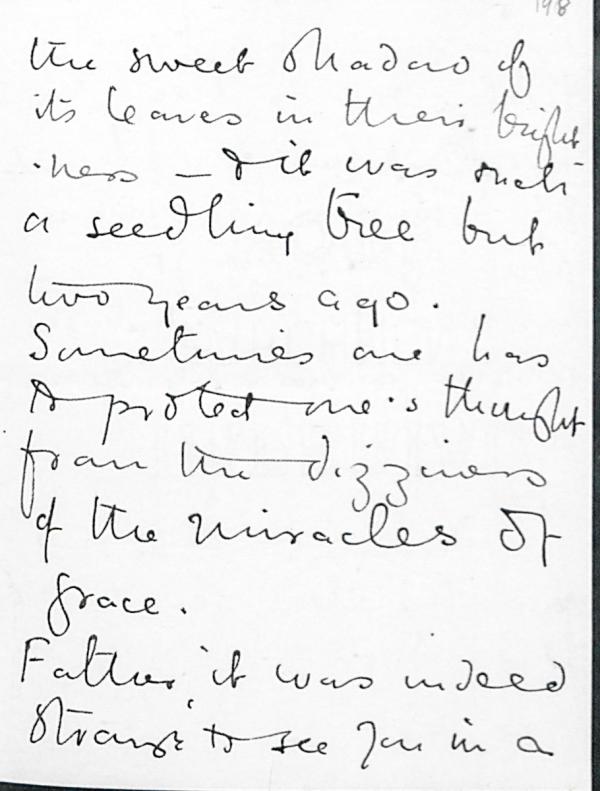 198
the sweet shadow of
its leaves in their bright
-ness — & it was such
a seedling tree but
two years ago.
Sometimes one has
to protect one's thought
from the dizziness
of the miracles of
grace.
Father, it was indeed
strange to see you in a